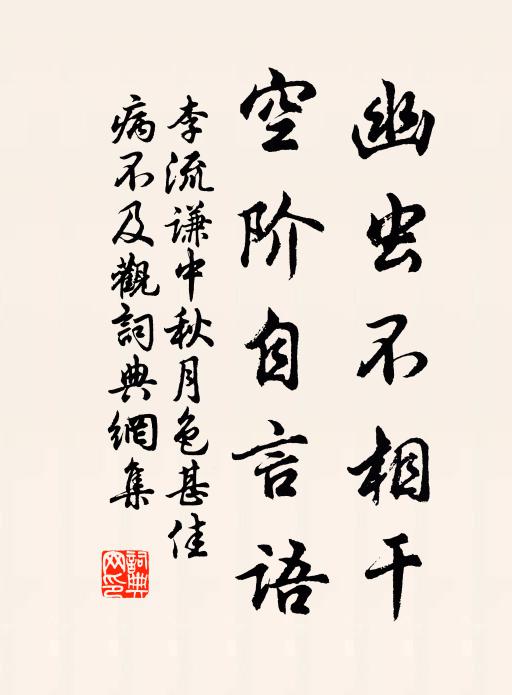 幽虫不相干
空阶自言语
李流谦中秋月色甚佳
病不及觀詞典網集
詞典网印